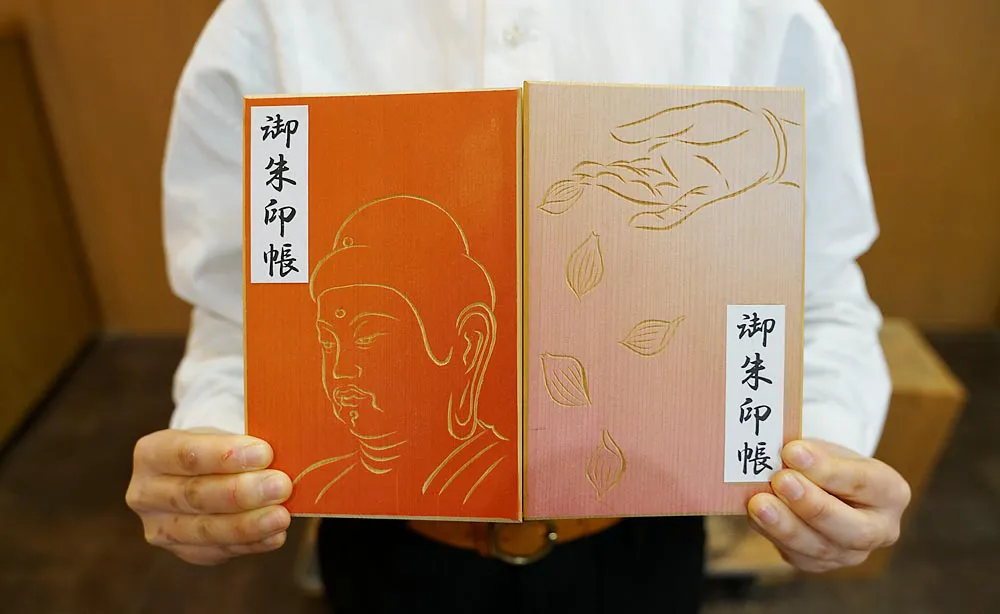 御朱印帳
御朱印帳